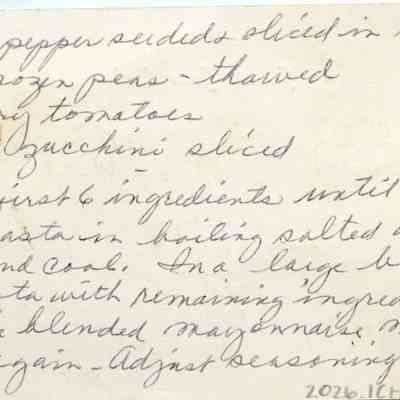 pepper seeded & sliced in
ozen peas - thawed
ry tomatoes
zucchini sliced
irst 6 ingredients until
asta in boiling salted
nd cool. In a large b
ta with remaining ingred
blended mayonnaise m
gain - Adjust seasoning
2026.1CH